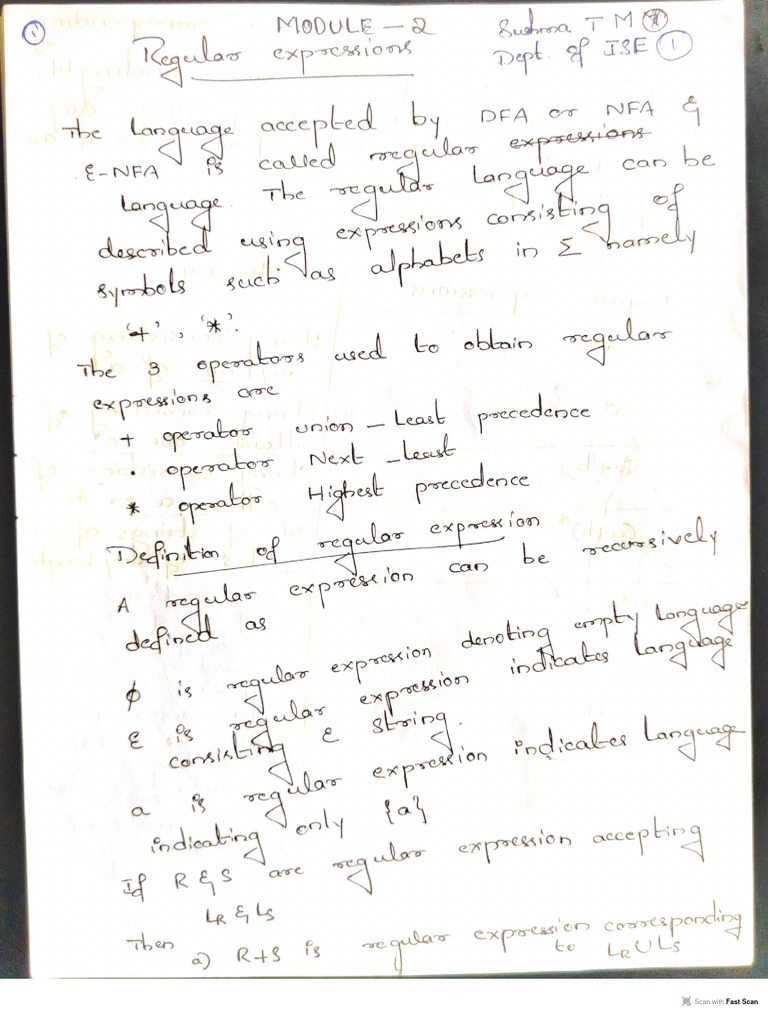 1
MODULE - 2
Sushma T M
Regular expressions
Dept. of ISE 1
The language accepted by DFA or NFA &
ε-NFA is called regular expressions
language. The regular language can be
described using expressions consisting of
symbols such as alphabets in Σ namely
'+', '*'.
The 3 operators used to obtain regular
expressions are
+ operator union - Least precedence
. operator Next - Least
* operator Highest precedence
Definition of regular expression
A regular expression can be recursively
defined as
ϕ is regular expression denoting empty language
ε is regular expression indicates language
consisting ε string.
a is regular expression indicates language
indicating only {a}
If R & S are regular expression accepting
LR & LS
Then
a) R+S is regular expression corresponding
to LR ∪ LS
Scan with Fast Scan